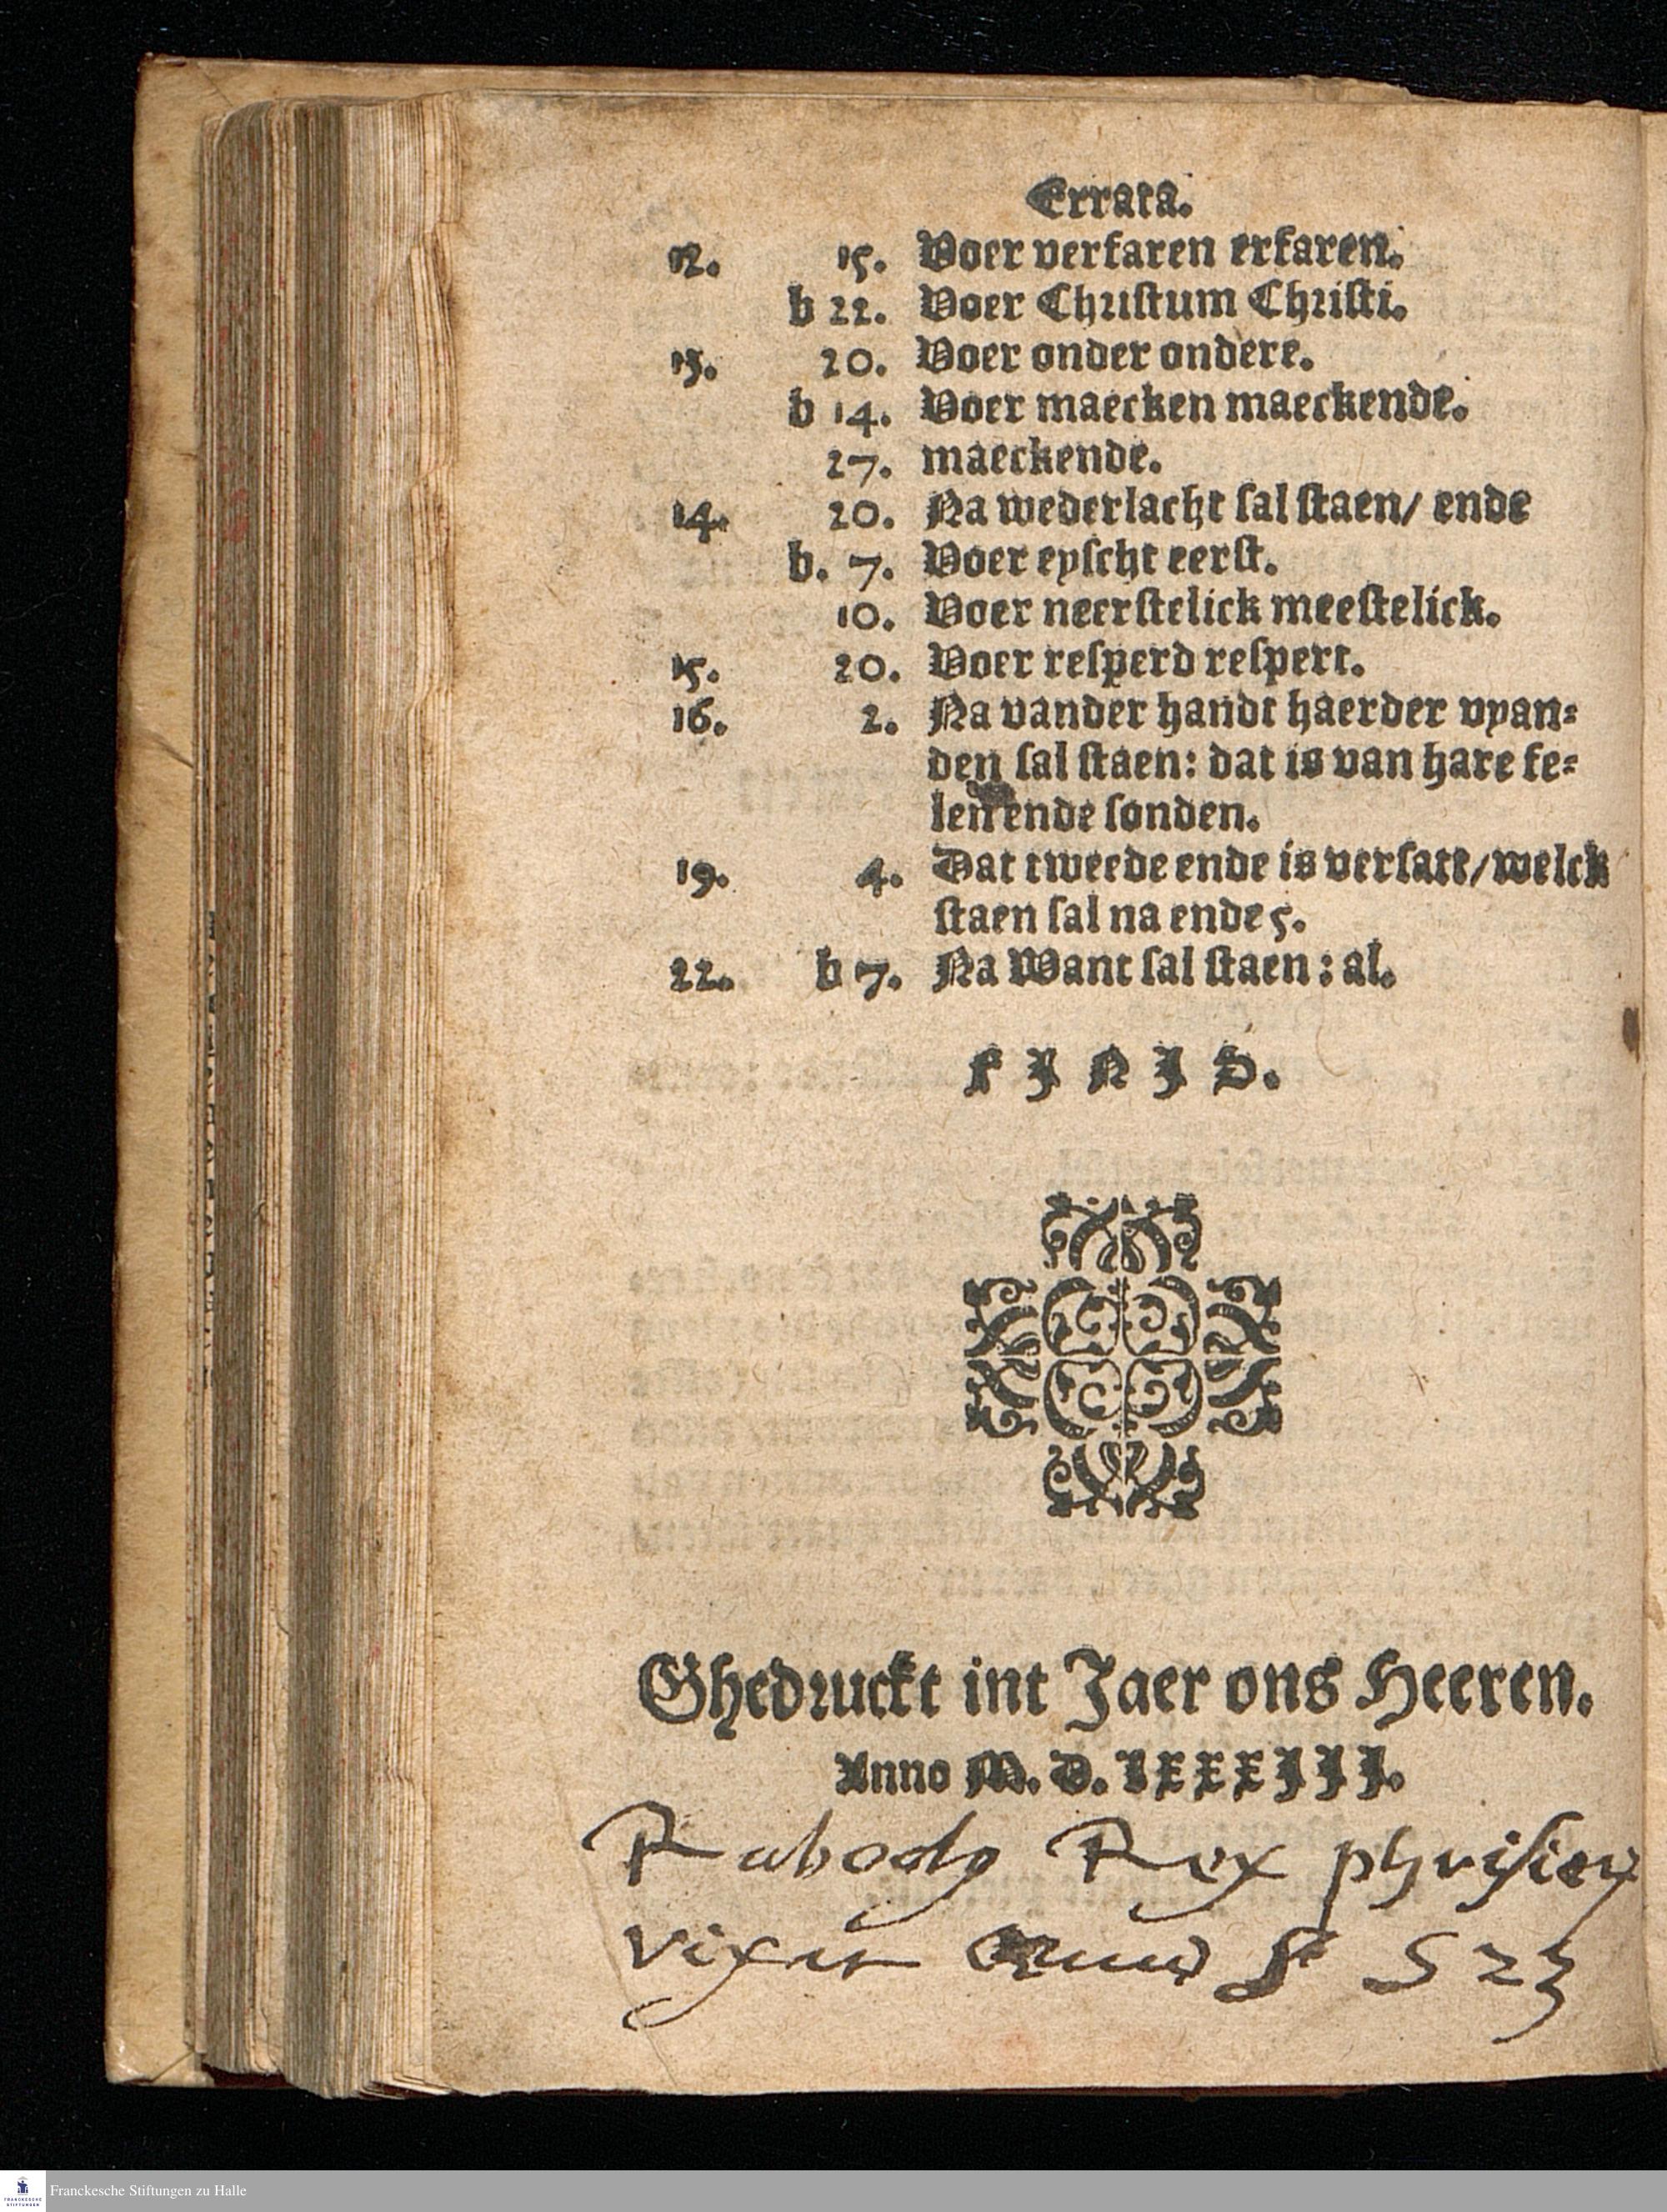 Errata.
12. 15. Voer verfaren erfaren.
b 22. Voer Christum Christi.
13. 20. Voer onder ondere.
b 14. Voer maecken maeckende.
27. maeckende.
14. 20. Na wederlacht sal staen/ ende
b. 7. Voer eyscht eerst.
10. Voer neerstelick meestelick.
15. 20. Voer resperd respert.
16. 2. Na vander handt haerder vyan-
den sal staen: dat is van hare fe-
len ende sonden.
19. 4. Dat tweede ende is versatt/welck
staen sal na ende 5.
22. b 7. Na Want sal staen: al.
FINIS.
Ghedruckt int Jaer ons Heeren.
Anno M. D. LXXXIII.
Rabodo Rex phrisien
vixit Anno 523
FRANCKESCHE STIFTUNGEN
Franckesche Stiftungen zu Halle